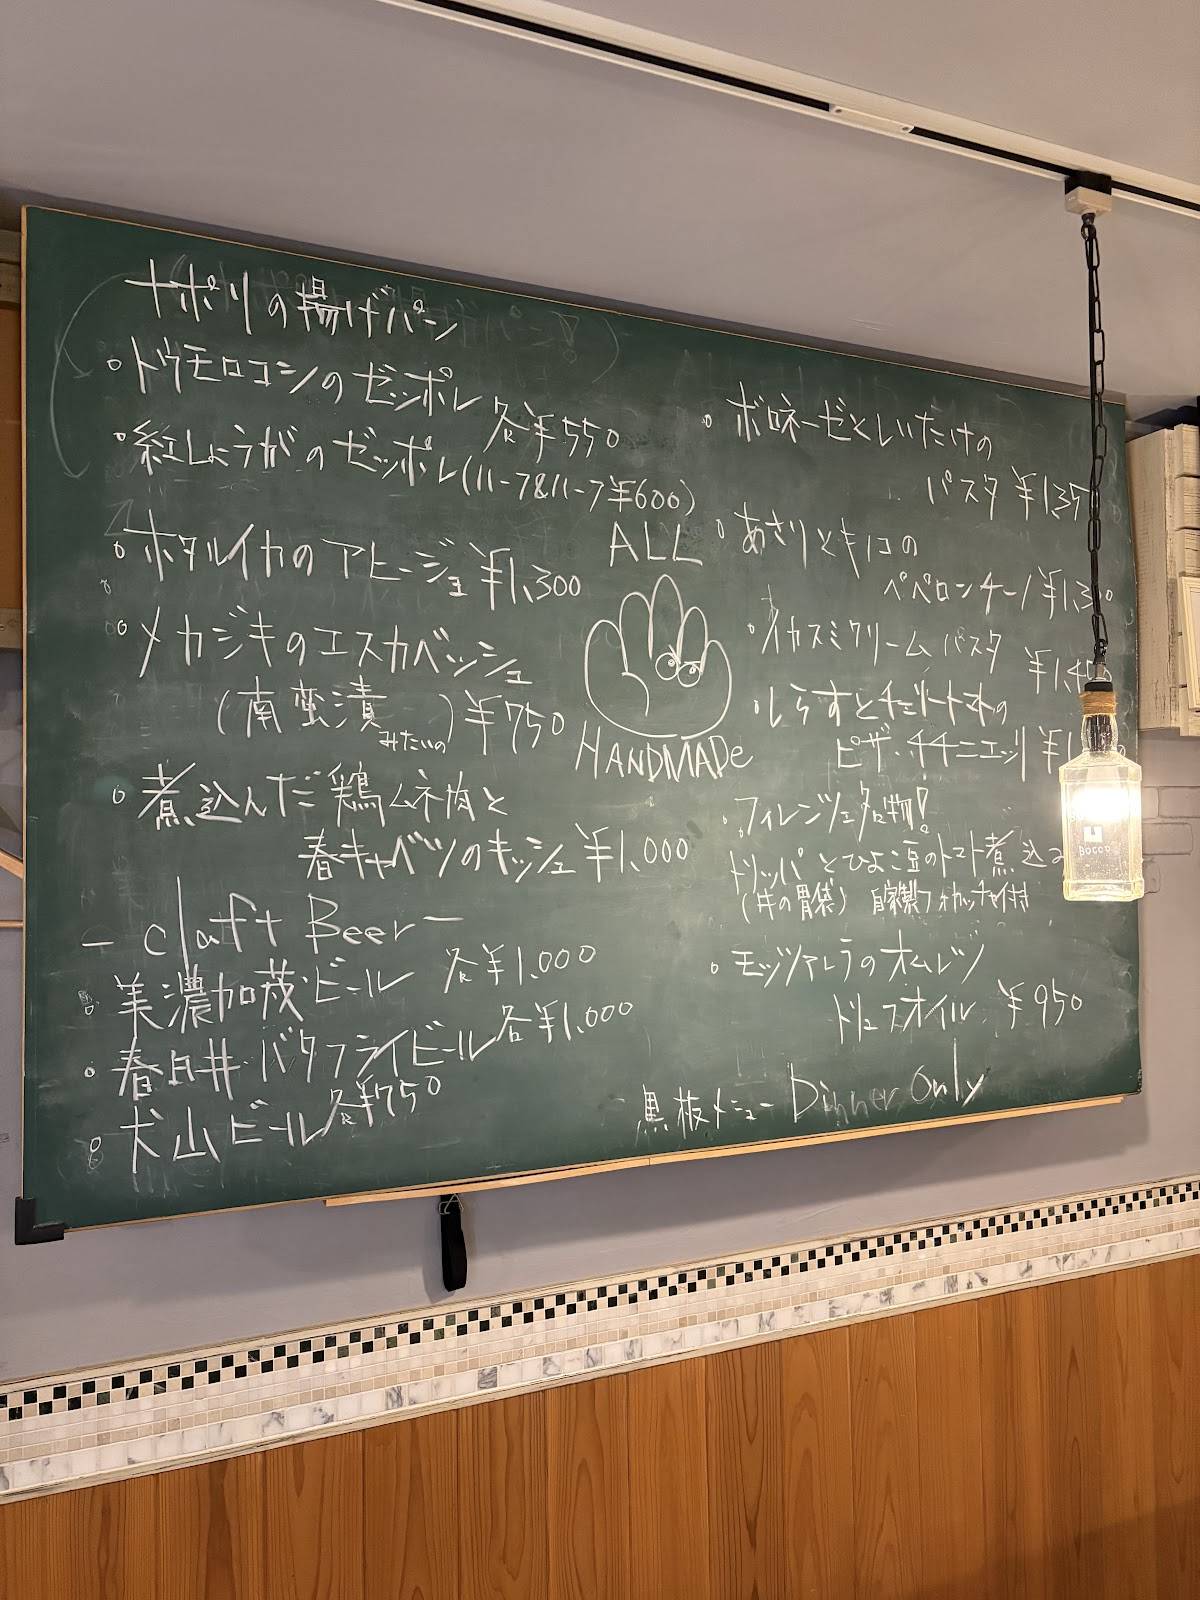 ナポリの揚げパン
トウモロコシのゼッポレ 各¥550
紅しょうがのゼッポレ(ハーフ&ハーフ¥600)
ホタルイカのアヒージョ ¥1,300
メカジキのエスカベッシュ
(南蛮漬みたいの)¥750
煮込んだ鶏ムネ肉と
春キャベツのキッシュ ¥1,000
- claft Beer -
美濃加茂・ビール 各¥1,000
春日井・バタフライビール 各¥1,000
犬山ビール 各¥750
ALL
HANDMADe
ボロネーゼとしいたけの
パスタ ¥1,35
あさりとキノコの
ペペロンチーノ ¥1,300
イカスミクリームパスタ
¥1,4
しらすとチェリートマトの
ピザ・チチニエッリ ¥1
フィレンツェ名物!
トリッパとひよこ豆のトマト煮込み
(牛の胃袋) 自家製フォカッチャ付き
モッツァレラのオムレツ
トリュフオイル ¥950
黒板メニュー Dinner Only
BOCCO